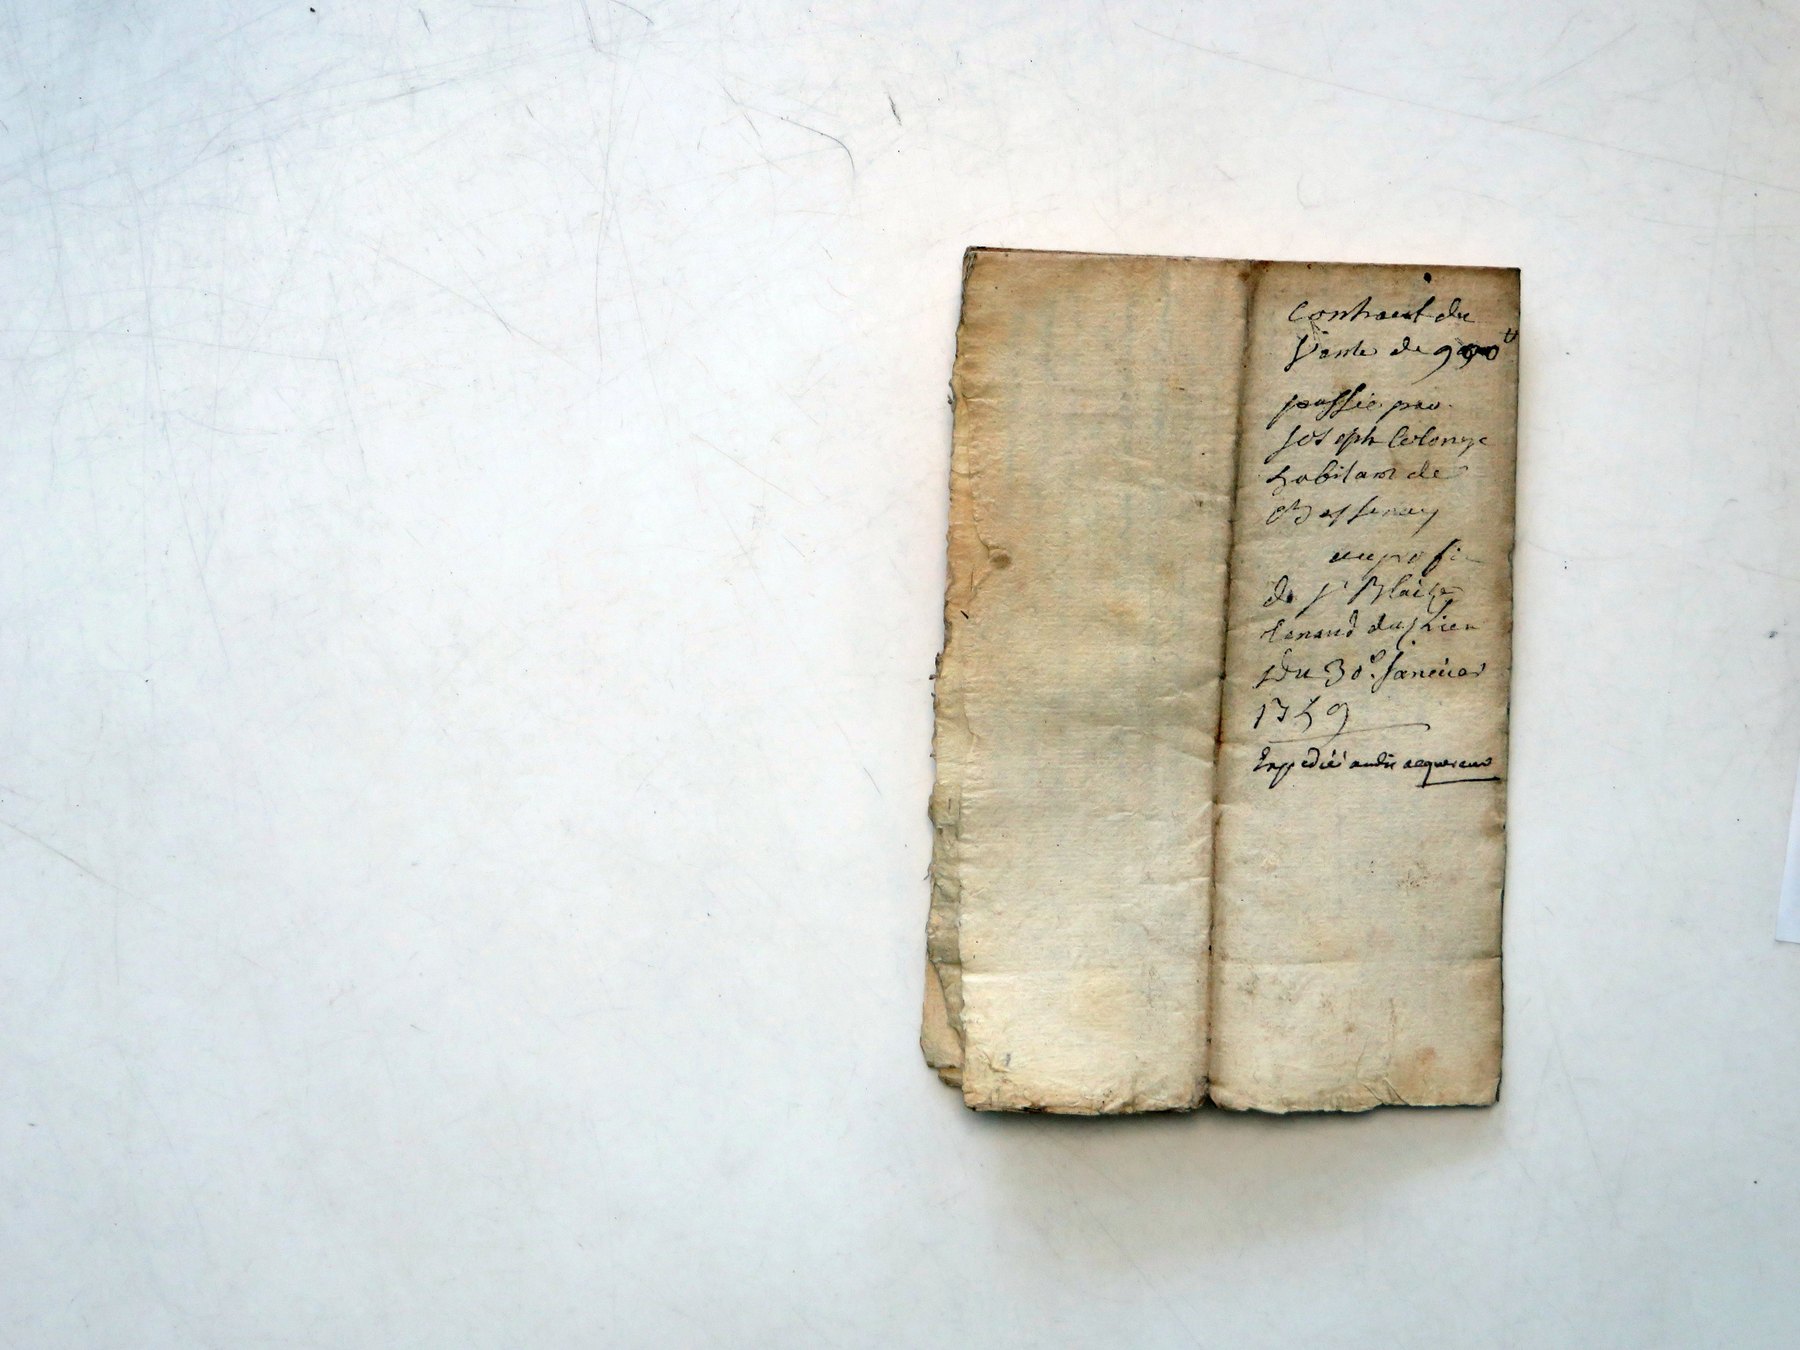 Contract du
Vente de
passée par
Joseph Colonge
habitant de
Bessenay
au profit
de Sr Blaize
Renaud du Lieu
Du 30e. Janvier
1759
Expedié audit acquereur